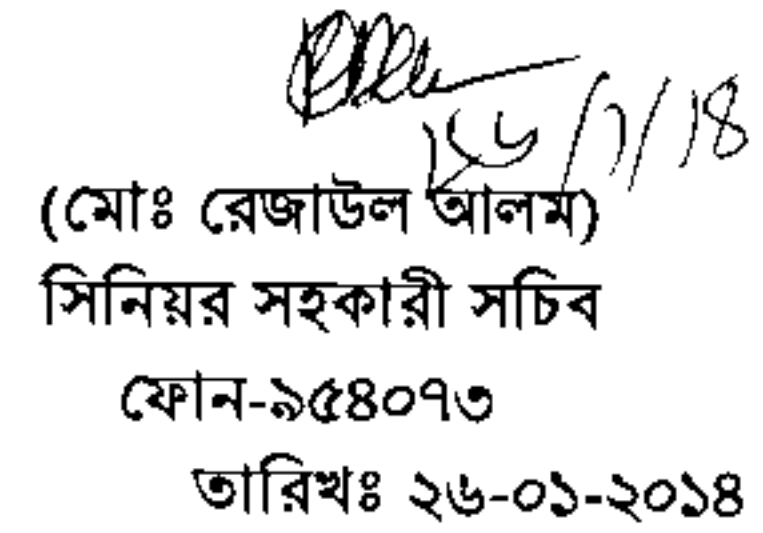 ২৬/১/১৪
(মোঃ রেজাউল আলম)
সিনিয়র সহকারী সচিব
ফোন-৯৫৪০৭৩
তারিখঃ ২৬-০১-২০১৪